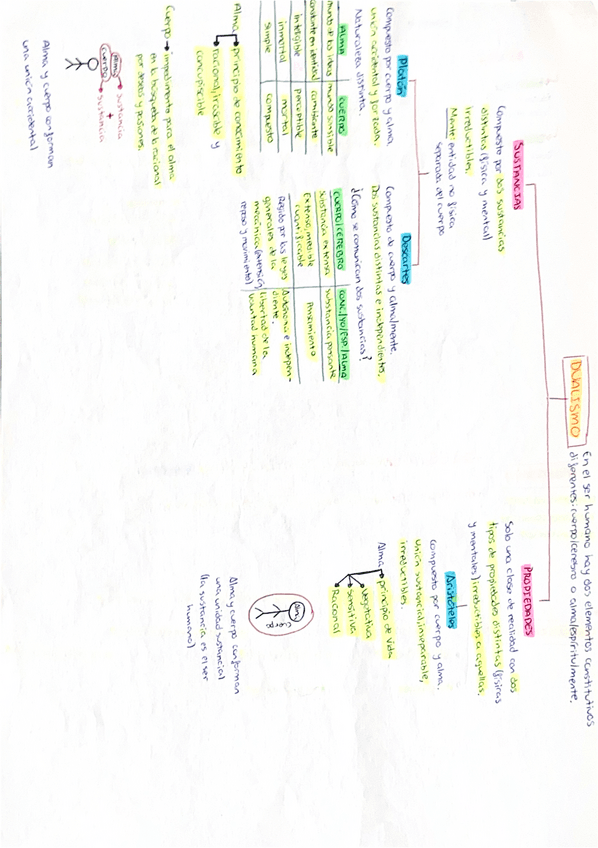 DUALISMO
En el ser humano hay dos elementos constitutivos
diferentes: cuerpo/cerebro o alma/espíritu/mente.
SUSTANCIAS
Compuesto por dos sustancias
distintas (física y mental)
irreductibles.
Mente: entidad no física
separada del cuerpo
Platón
Compuesto por cuerpo y alma.
Unión accidental y forzada.
Naturaleza distinta.
ALMA CUERPO
mundo de las ideas mundo sensible
constante en identidad
inteligible perceptible
inmortal mortal
simple compuesto
Alma principio de conocimiento
racional, irascible y
concupiscible
Cuerpo → impedimento para el alma
en la búsqueda de lo racional
por deseos y pasiones.
alma → sustancia
+
cuerpo → sustancia
Alma y cuerpo conforman
una unión accidental
Descartes
Compuesto de cuerpo y alma/mente.
Dos sustancias distintas e independientes.
¿Cómo se comunican dos sustancias?
CUERPO/CEREBRO CONC./YO/ESP./ALMA
sustancia extensa sustancia pensante
Extenso, medible Pensamiento
cuantificable
Regido por las leyes Autónoma e indepen-
generales de la diente.
mecánica (extensión, Libertad de la
reposo y movimiento) voluntad humana
PROPIEDADES
Solo una clase de realidad con dos
tipos de propiedades distintas (físicas
y mentales) irreductibles a aquellas.
Aristóteles
Compuesto por cuerpo y alma.
Unión sustancial, inseparable,
irreductibles.
Alma principio de vida
vegetativa
sensitiva
Racional
alma
cuerpo
Alma y cuerpo conforman
una unidad sustancial
(la sustancia es el ser
humano)